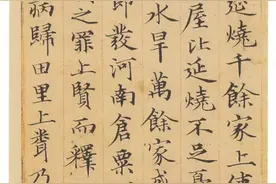 延燒千餘家上使
屋比延燒不足憂
水旱萬餘家或
發河南倉粟
之罪上賢而釋
病歸田里上聞乃